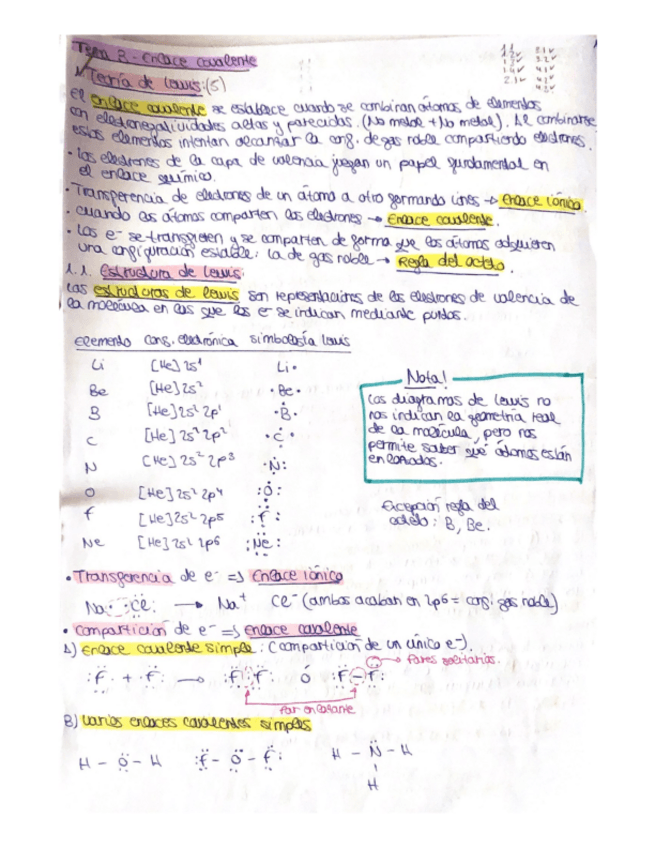 Tema 2.- Enlace covalente
1. Teoría de Lewis: (5)
El enlace covalente se establece cuando se combinan átomos de elementos
con electronegatividades altas y parecidas. (No metal + No metal). Al combinarse
estos elementos intentan alcanzar la conf. de gas noble compartiendo electrones.
• Los electrones de la capa de valencia juegan un papel fundamental en
el enlace químico.
• Transferencia de electrones de un átomo a otro formando iones → Enlace iónico.
• cuando los átomos comparten los electrones → Enlace covalente.
• Los e- se transfieren y se comparten de forma que los átomos adquieren
una configuración estable: la de gas noble → Regla del octeto.
1.1. Estructura de Lewis:
Las estructuras de Lewis son representaciones de los electrones de valencia de
la molécula en las que los e- se indican mediante puntos.
Elemento conf. electrónica simbología Lewis
Li [He] 2s1 Li •
Be [He] 2s2 • Be •
B [He] 2s2 2p1 • B •
C [He] 2s2 2p2 • C •
N [He] 2s2 2p3 • N :
O [He] 2s2 2p4 : O :
F [He] 2s2 2p5 : F :
Ne [He] 2s2 2p6 : Ne :
Nota!
Los diagramas de Lewis no
nos indican la geometría real
de la molécula, pero nos
permite saber qué átomos están
enlazados.
Excepción regla del
octeto: B, Be.
• Transferencia de e- => Enlace iónico
Na • • Cl : → Na+ Cl- (ambos acaban en 2p6 = conf. gas noble)
• Compartición de e- => enlace covalente
A) Enlace covalente simple: (Compartición de un único e-).
→ Pares solitarios.
: F • + • F : → : F : F : ó : F - F :
Par enlazante
B) Varios enlaces covalentes simples
H - O - H : F - O - F : H - N - H
H